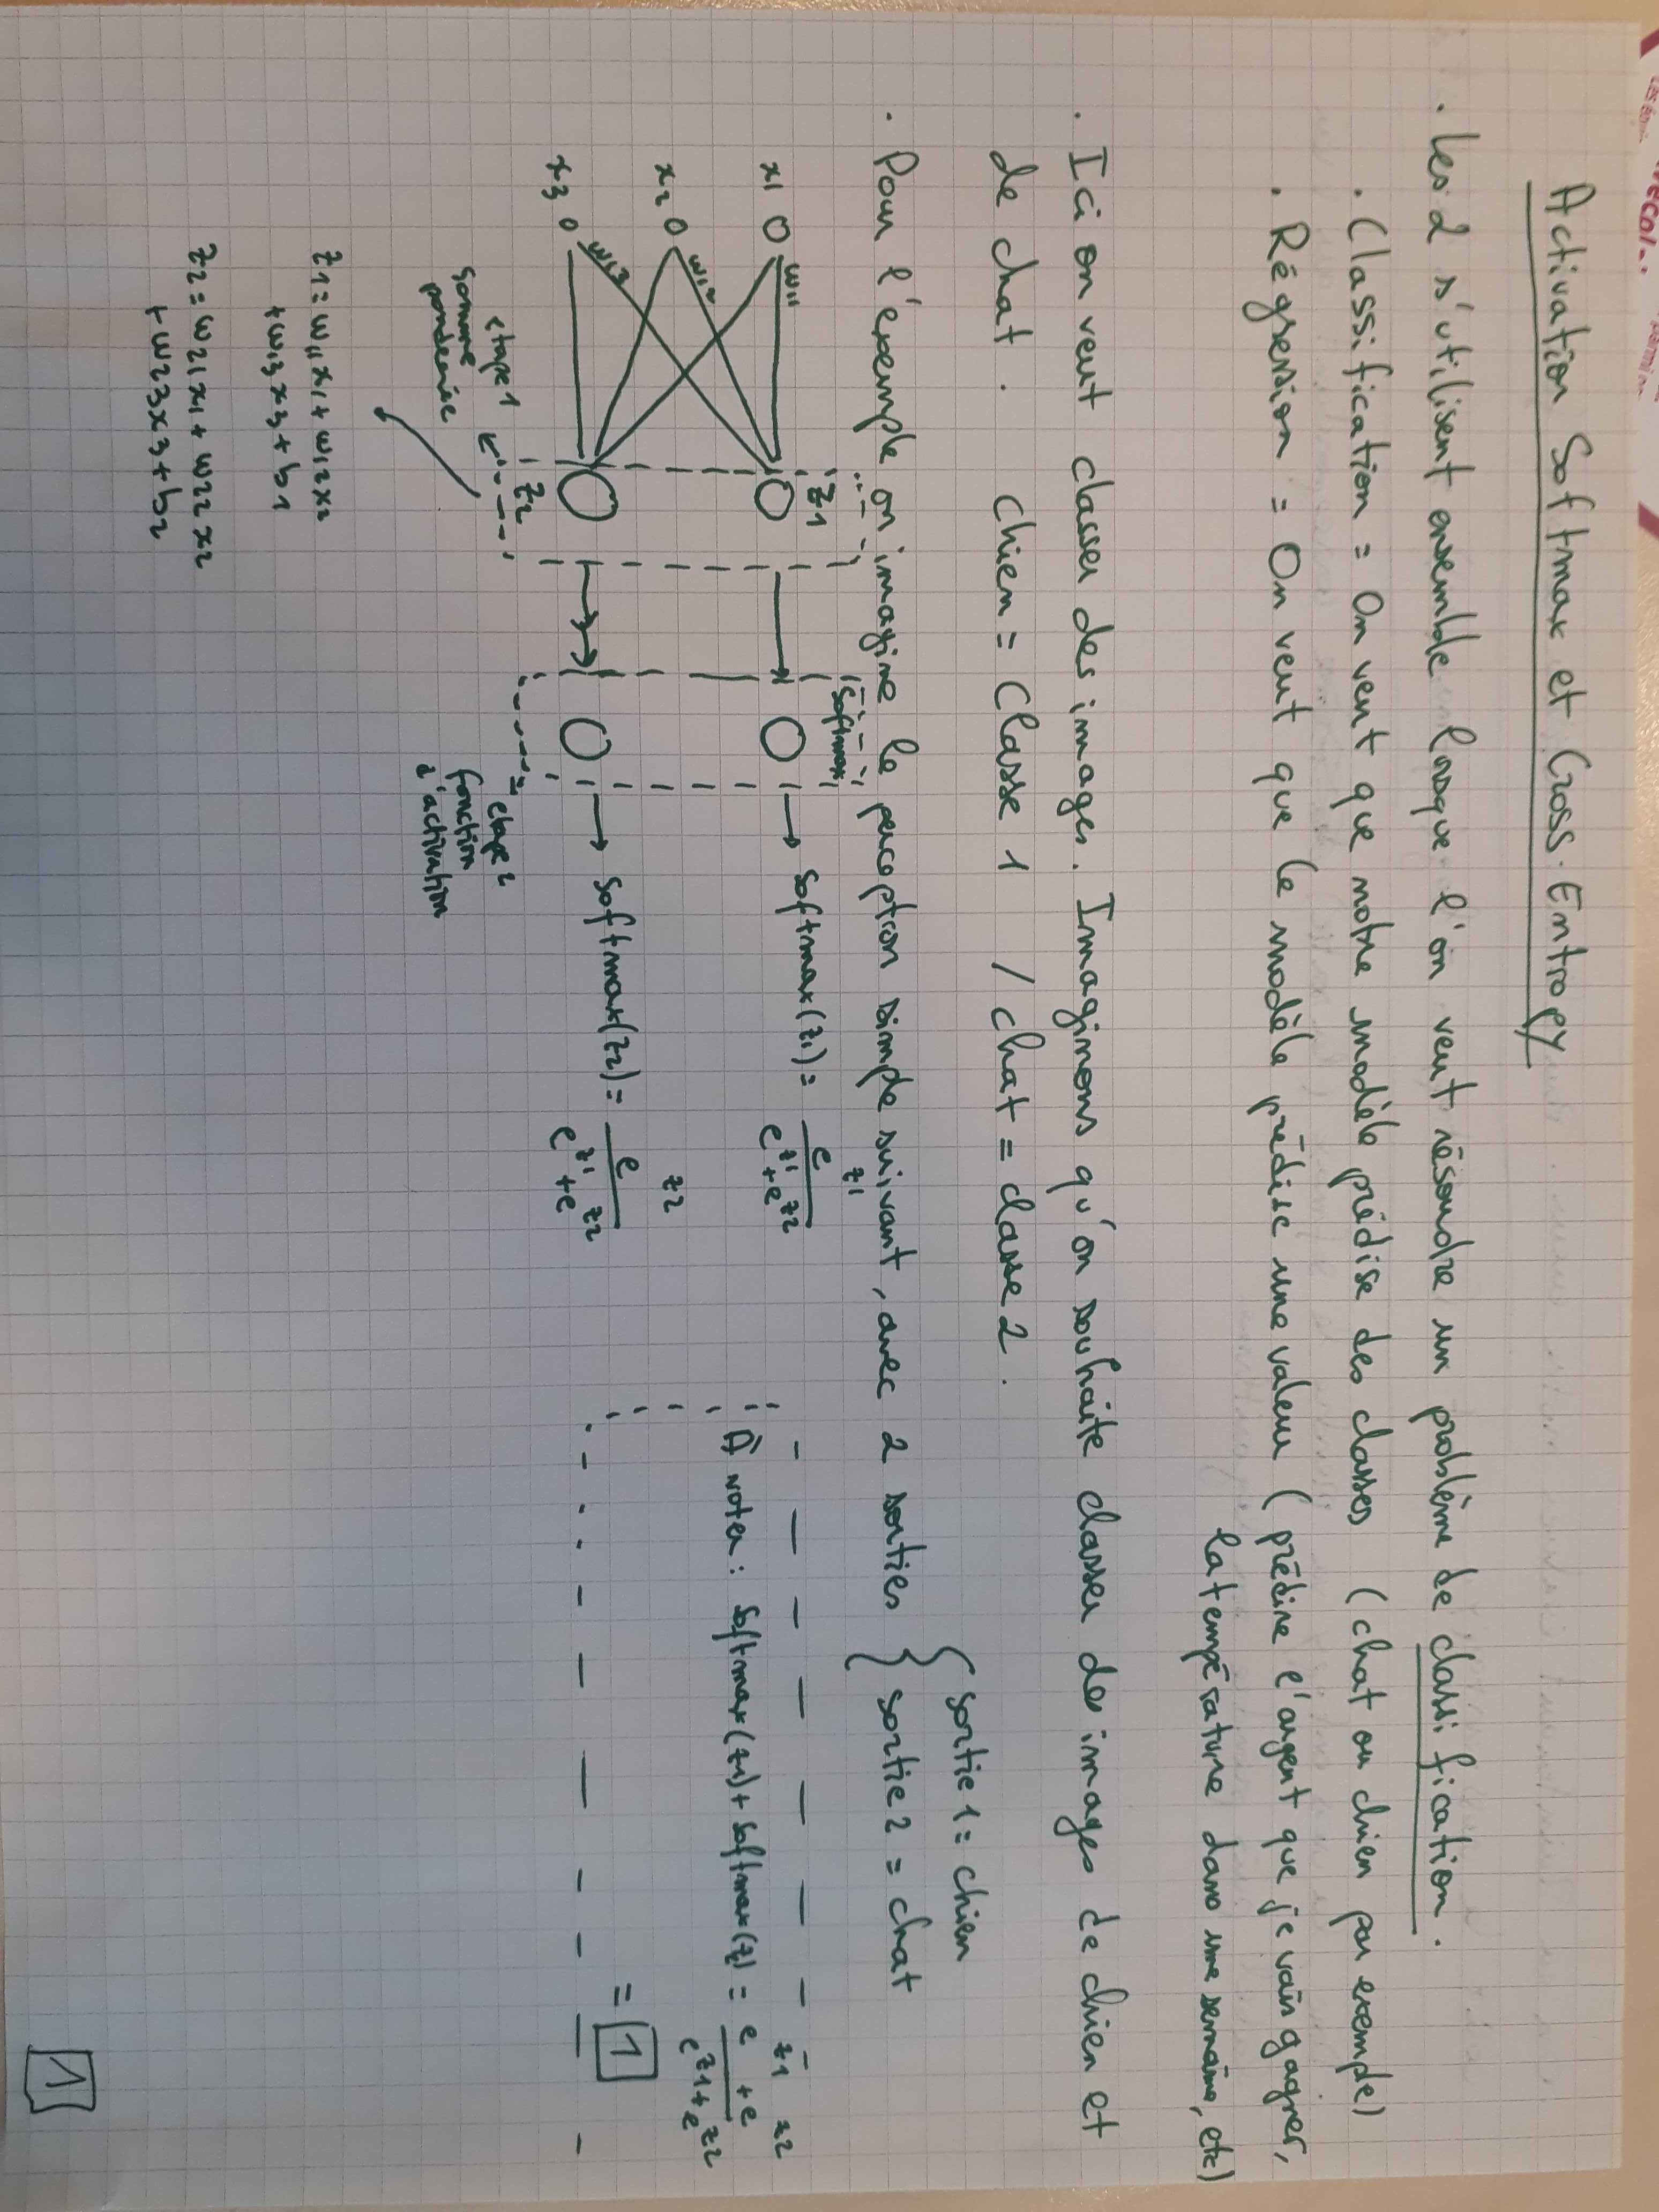 Activation Softmax et Cross-Entropy
. Les 2 s'utilisent ensemble lorsque l'on veut résoudre un problème de classification.
. Classification = On veut que notre modèle prédise des classes (chat ou chien par exemple)
. Régression = On veut que le modèle prédise une valeur (prédire l'argent que je vais gagner,
la température dans une semaine, etc)
. Ici on veut classer des images. Imaginons qu'on souhaite classer des images de chien et
de chat. chien = Classe 1 / chat = classe 2.
. Pour l'exemple on imagine le perceptron simple suivant, avec 2 sorties { sortie 1 = chien
{ sortie 2 = chat
z1
softmax
x1 w11 → softmax(z1) = e^z1 / (e^z1 + e^z2)
x2 w12
x3 w13 → softmax(z2) = e^z2 / (e^z1 + e^z2)
z2
À noter : softmax(z1) + softmax(z2) = (e^z1 + e^z2) / (e^z1 + e^z2)
= 1
etape 1
somme
pondérée
etape 2
fonction
d'activation
z1 = w11 x1 + w12 x2
+ w13 x3 + b1
z2 = w21 x1 + w22 x2
+ w23 x3 + b2
1